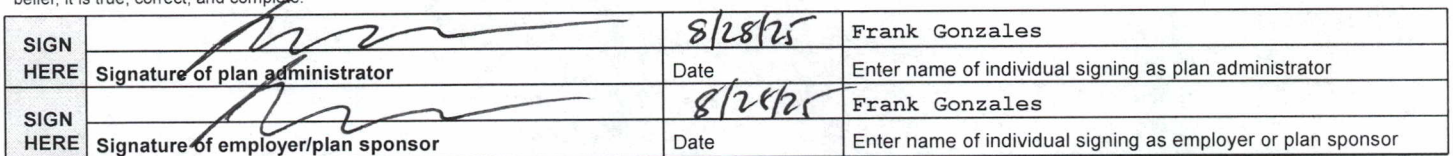 belief, it is true, correct, and complete.
SIGN HERE
8/28/25 Frank Gonzales
Signature of plan administrator Date Enter name of individual signing as plan administrator
SIGN HERE
8/28/25 Frank Gonzales
Signature of employer/plan sponsor Date Enter name of individual signing as employer or plan sponsor